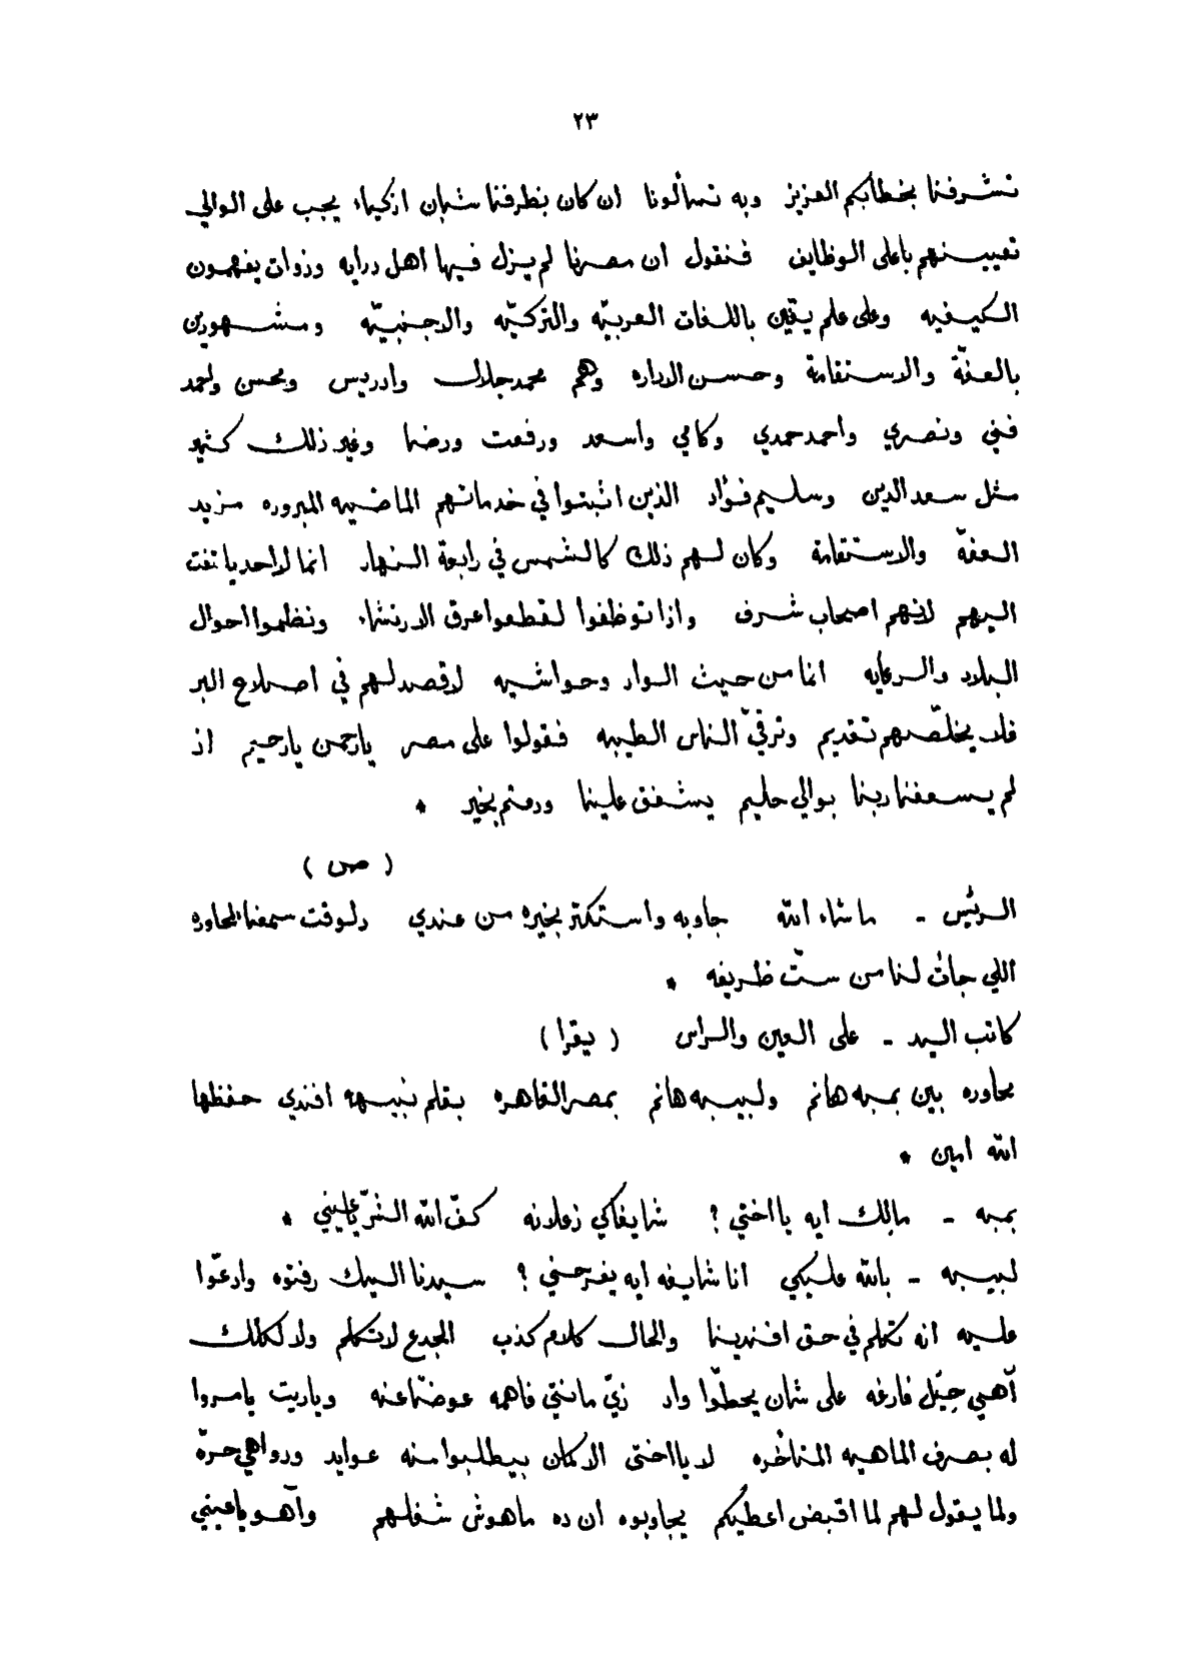 ٢٣
تشرفنا بخطابكم العزيز وبه تسألونا ان كان بطرفنا شبان ازكياء يجب على الوالي
تعيينهم باعلى الوظايف فنقول ان مصرنا لم يزل فيها اهل درايه وزوات يفهمون
الكيفيه وعلى علم يقين باللغات العربيّه والتركيّه والاجنبيّه ومشهورين
بالعفّة والاستقامة وحسن الاداره وهم محمد جلال وادريس ومحسن واحمد
فني ونصري واحمد حمدي وكامي واسعد ورفعت ورضا وغير ذلك كثير
مثل سعد الدين وسليم فؤاد الذين اثبتوا في خدماتهم الماضيه المبروره مزيد
العفّة والاستقامة وكان لهم ذلك كالشمس في رابعة النهار انما لا احد يلتفت
اليهم لانهم اصحاب شرف واذا توظفوا لقطعوا عرق الارتشاء ونظموا احوال
البلاد والرعايه انما من حيث الواد وحواشيه لا قصد لهم في اصلاح البر
فلا يخلّصهم تقديم وترقيّ الناس الطيبه فقولوا على مصر يا رحمن يا رحيم اذ
لم يسعفنا ربنا بوالي حليم يشفق علينا ودمتم بخير *
( ص )
الريّس ـ ما شاء الله جاوبه واستكتر بخيره من عندي دلوقت سمعنا المحاوره
اللي جات لنا من ستّ ظريفه *
كاتب اليد ـ على العين والراس ( يقرا )
محاوره بين بمبه هانم ولبيبه هانم بمصر القاهره بقلم نبيهه افندي حفظها
الله امين *
بمبه ـ مالك ايه يا اختي ؟ شايفاكي زعلانه كفّ الله الشرّ يا عليني *
لبيبه ـ بالله عليكي انا شايفه ايه يفرحني ؟ سيدنا البيك رفتوه وادعّوا
عليه انه تكلم في حق افندينا والحال كلام كذب الجدع لا تكلم ولا لكلك
آهي حِيَل فارغه على شان يحطّوا واد زيّ مانتي فاهمه عوضاً عنه وياريت يامروا
له بصرف الماهيه المتأخره لا يا اختى الا كمان بيطلبوا منه عوايد ودواهي حرّه
ولما يقول لهم لما اقبض اعطيكم يجاوبوه ان ده ماهوش شغلهم وآهو يا عيني